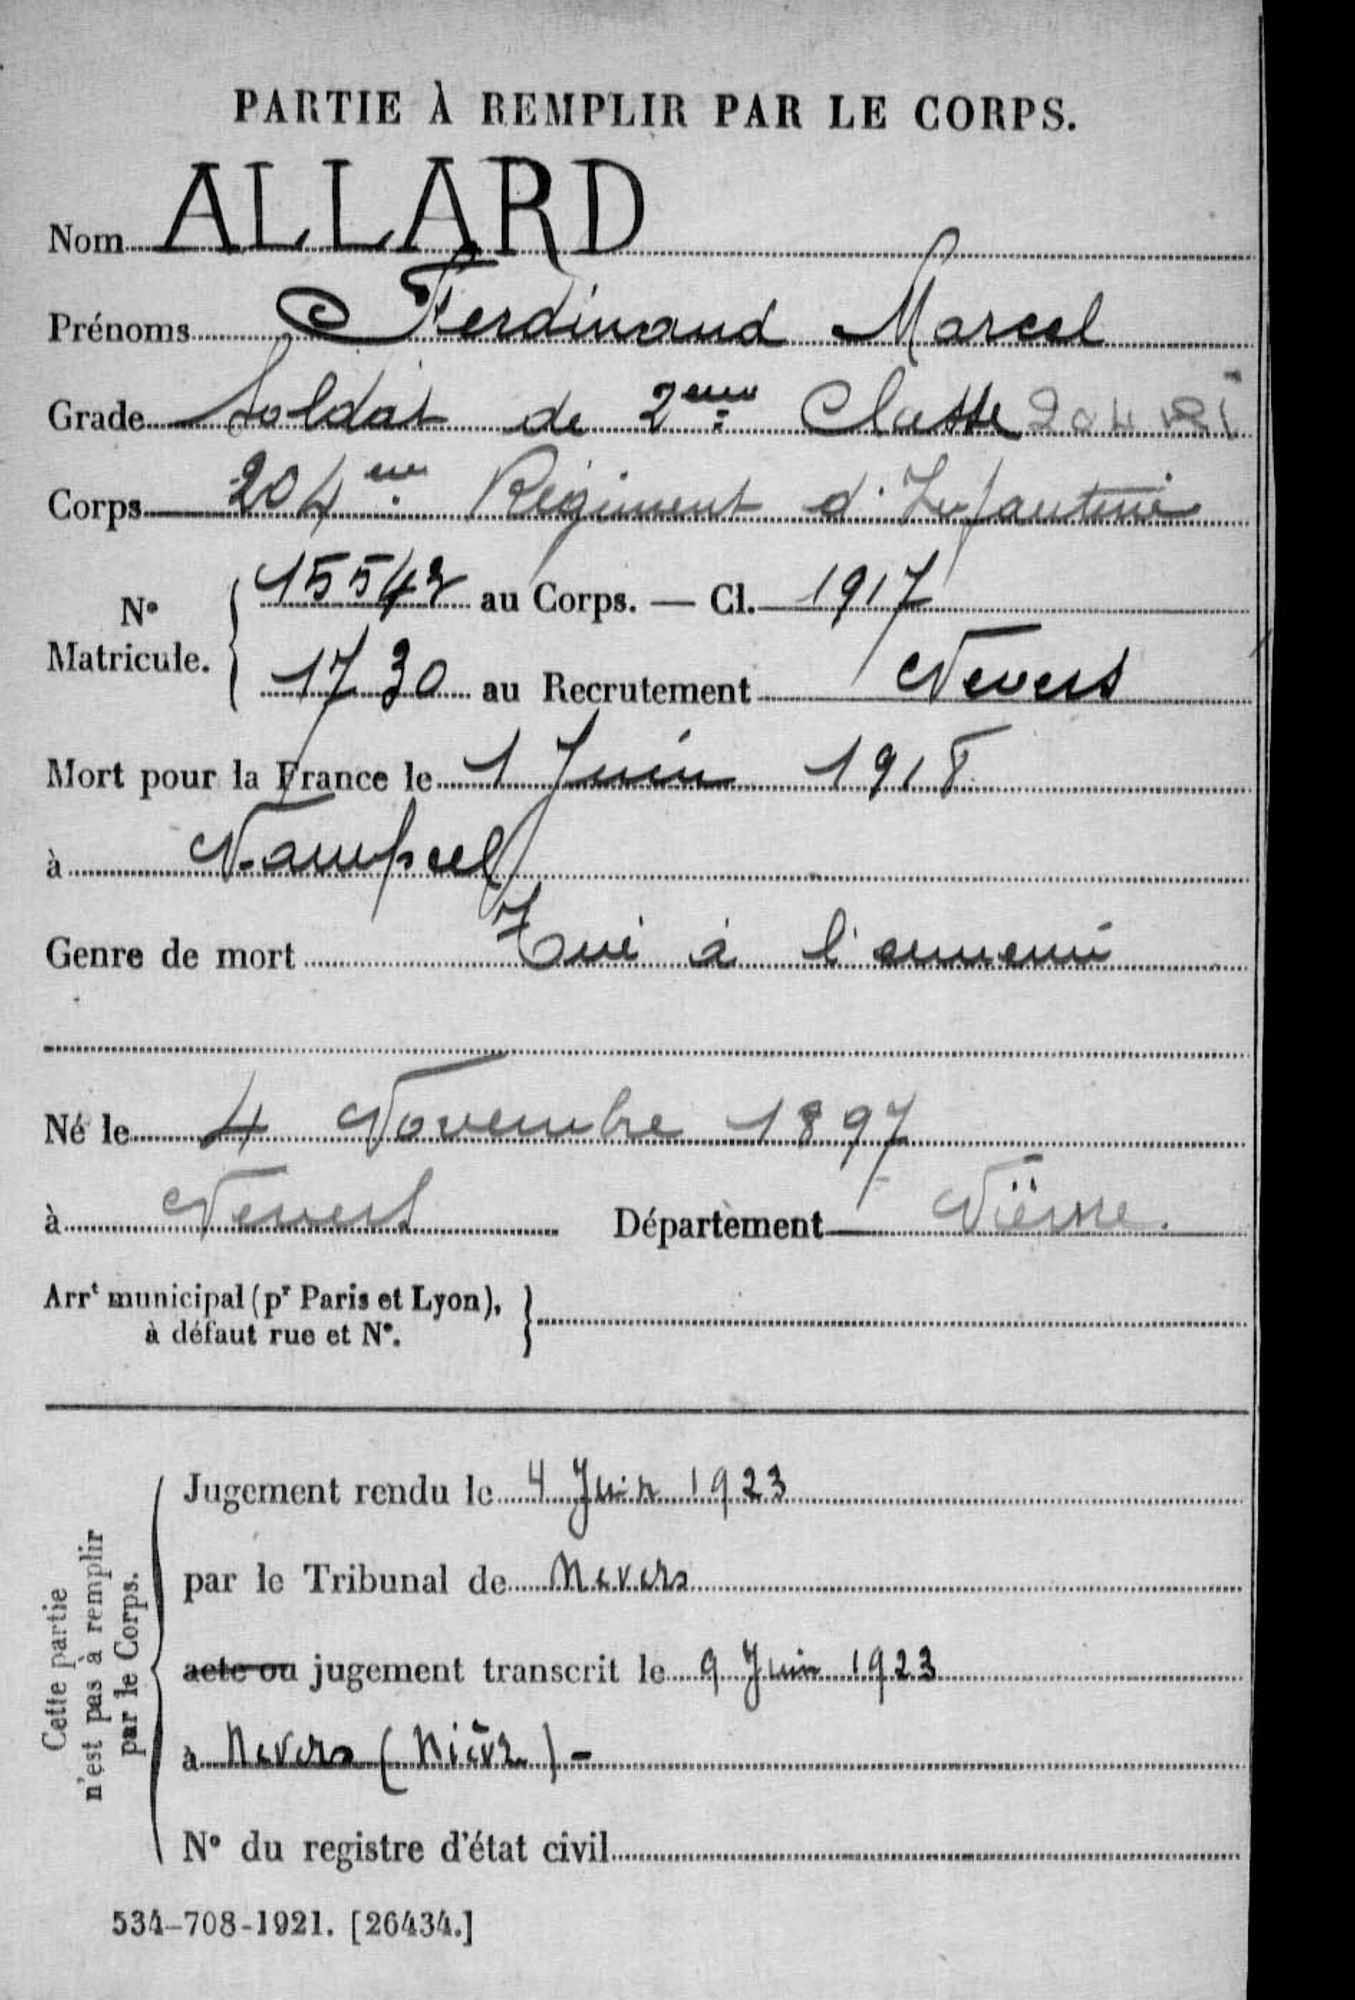 PARTIE À REMPLIR PAR LE CORPS.
Nom ALLARD
Prénoms Ferdinand Marcel
Grade Soldat de 2eme Classe 204 RI
Corps 204eme Régiment d'Infanterie
N° Matricule. 15542 au Corps. — Cl. 1917
1730 au Recrutement Nevers
Mort pour la France le 1 Juin 1918
à Nampcel
Genre de mort Tué à l'ennemi
Né le 4 Novembre 1897
à Nevers Département Nièvre.
Arrt municipal (pr Paris et Lyon),
à défaut rue et N°.
Cette partie
n'est pas à remplir
par le Corps.
Jugement rendu le 4 Juin 1923
par le Tribunal de Nevers
acte ou jugement transcrit le 9 Juin 1923
à Nevers (Nièvre) -
N° du registre d'état civil
534-708-1921. [26434.]